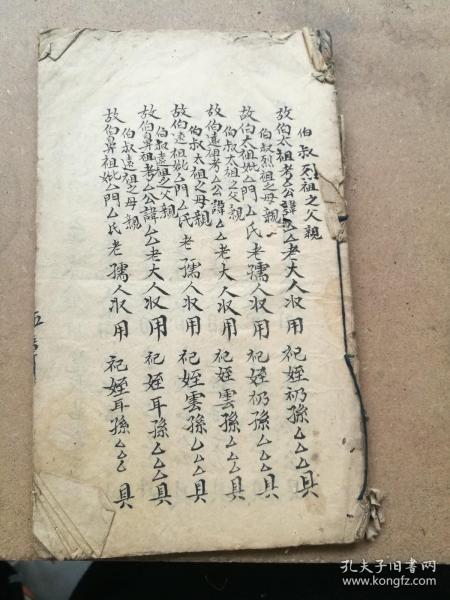 伯叔烈祖之父親
故伯太祖考厶公諱厶厶老大人収用 祀姪礽孫厶厶厶具
伯叔烈祖之母親
故伯太祖妣厶門厶氏老孺人収用 祀姪礽孫厶厶厶具
伯叔太祖之父親
故伯遠祖考厶公諱厶厶老大人収用 祀姪雲孫厶厶厶具
伯叔太祖之母親
故伯遠祖妣厶門厶氏老孺人収用 祀姪雲孫厶厶厶具
伯叔遠祖之父親
故伯鼻祖考厶公諱厶厶老大人収用 祀姪耳孫厶厶厶具
伯叔遠祖之母親
故伯鼻祖妣厶門厶氏老孺人収用 祀姪耳孫厶厶厶具
孔夫子旧书网
www.kongfz.com